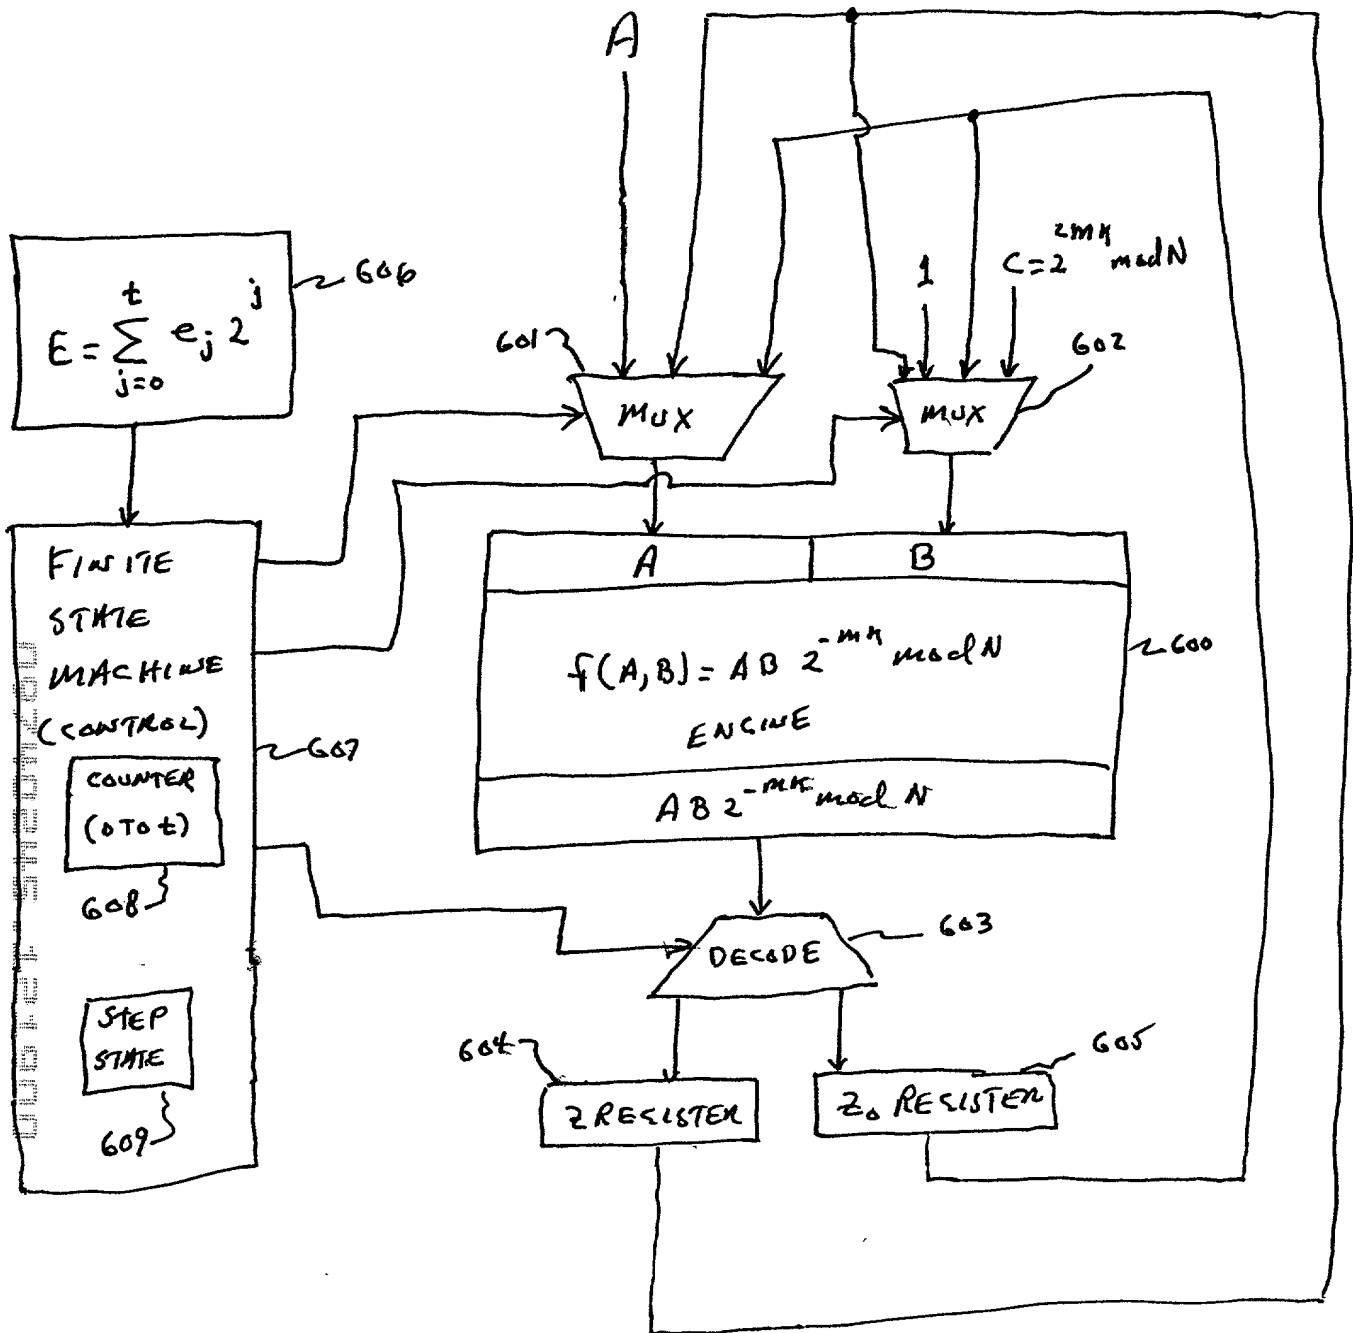 A
E = \sum_{j=0}^{t} e_j 2^j
606
1
C = 2^{2mk} mod N
601
MUX
602
MUX
FINITE
STATE
MACHINE
(CONTROL)
607
COUNTER
(0 TO t)
608
STEP
STATE
609
A
B
f(A,B) = AB 2^{-mk} mod N
ENGINE
600
AB 2^{-mk} mod N
DECODE
603
604
Z REGISTER
605
Z_0 REGISTER